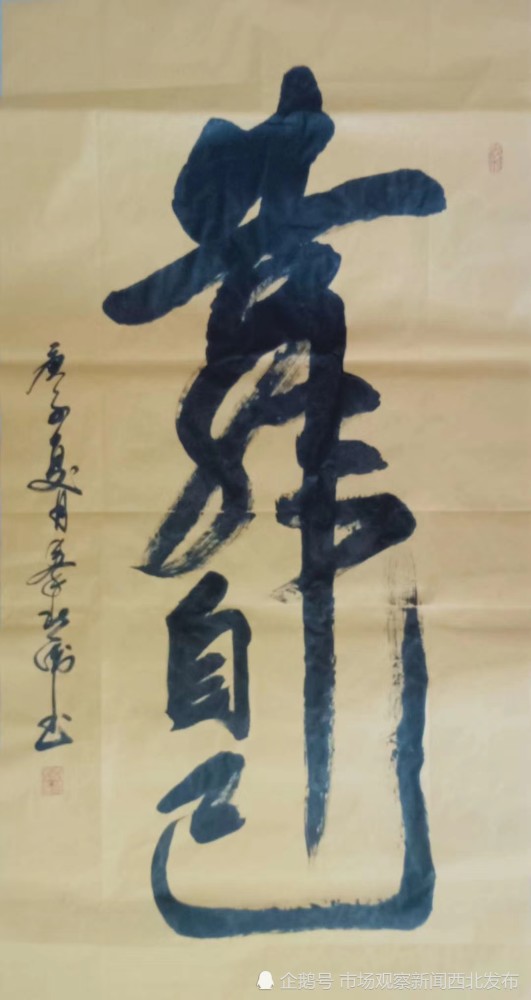 靠自己
庚子夏月 书
企鹅号 市场观察新闻西北发布